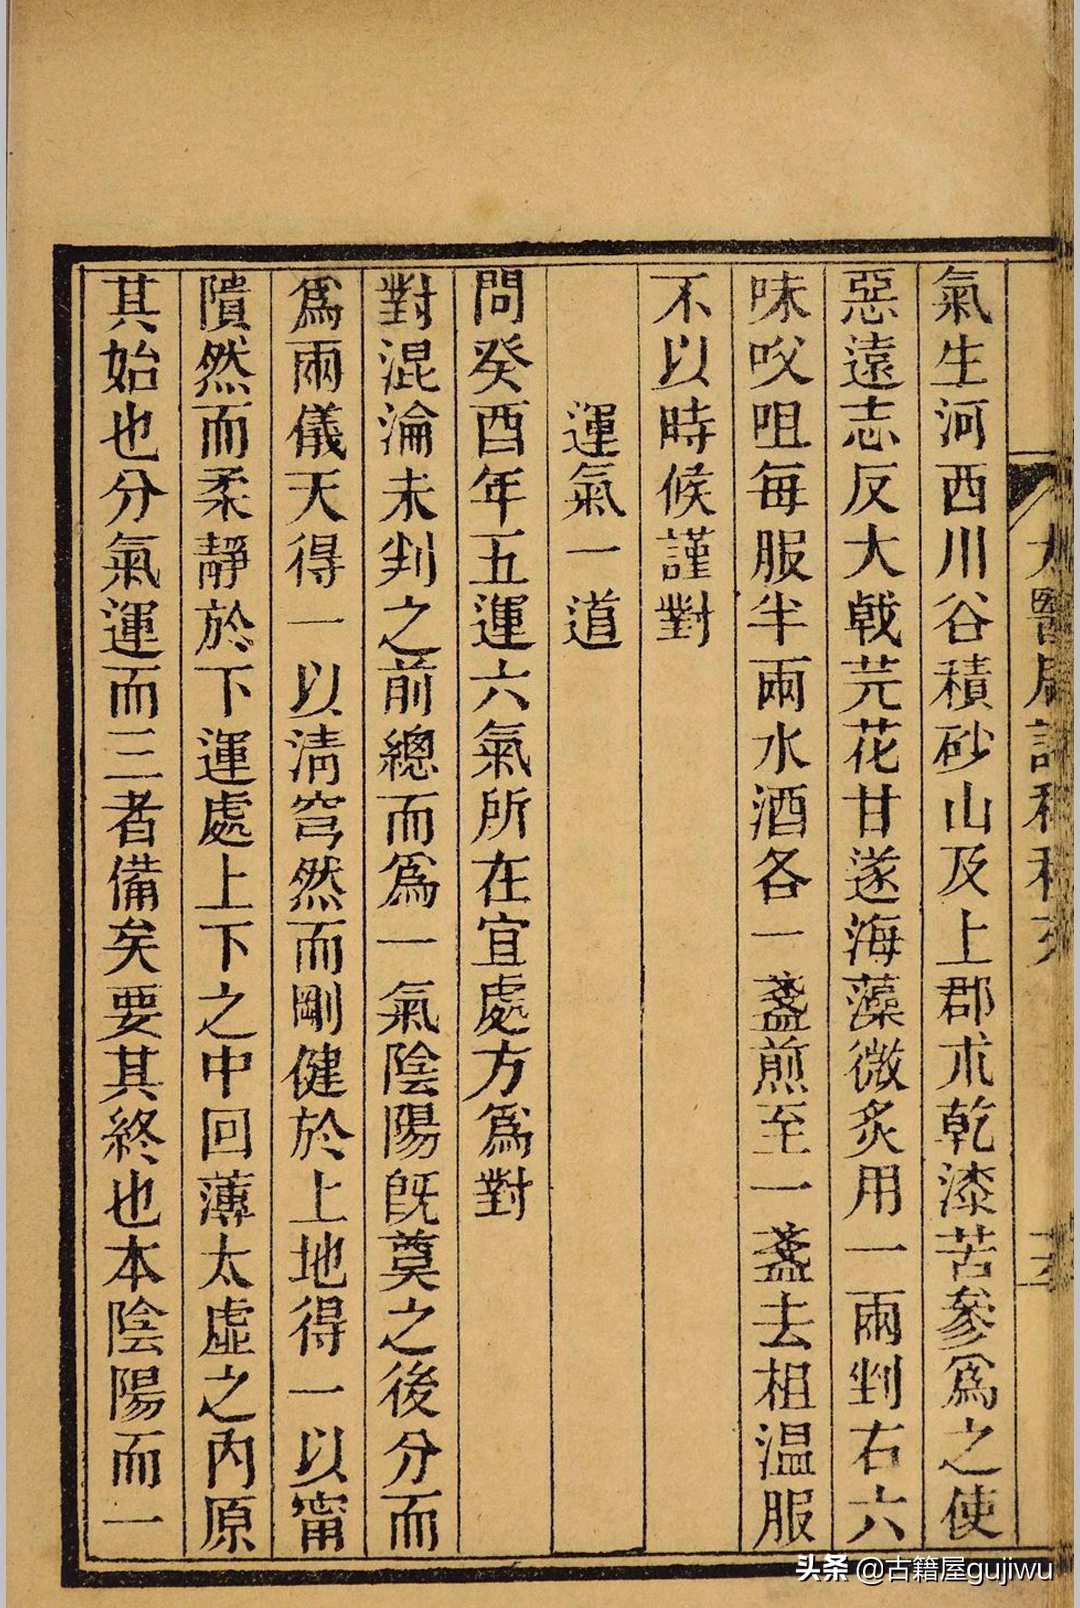 氣生河西川谷積砂山及上郡朮乾漆苦參爲之使
惡遠志反大戟芫花甘遂海藻微炙用一兩剉右六
味㕮咀每服半兩水酒各一盞煎至一盞去柤溫服
不以時候謹對
運氣一道
問癸酉年五運六氣所在宜處方爲對
對混淪未判之前總而爲一氣陰陽旣奠之後分而
爲兩儀天得一以淸穹然而剛健於上地得一以甯
隤然而柔靜於下運處上下之中回薄太虛之內原
其始也分氣運而三者備矣要其終也本陰陽而一
头条 @古籍屋gujiwu